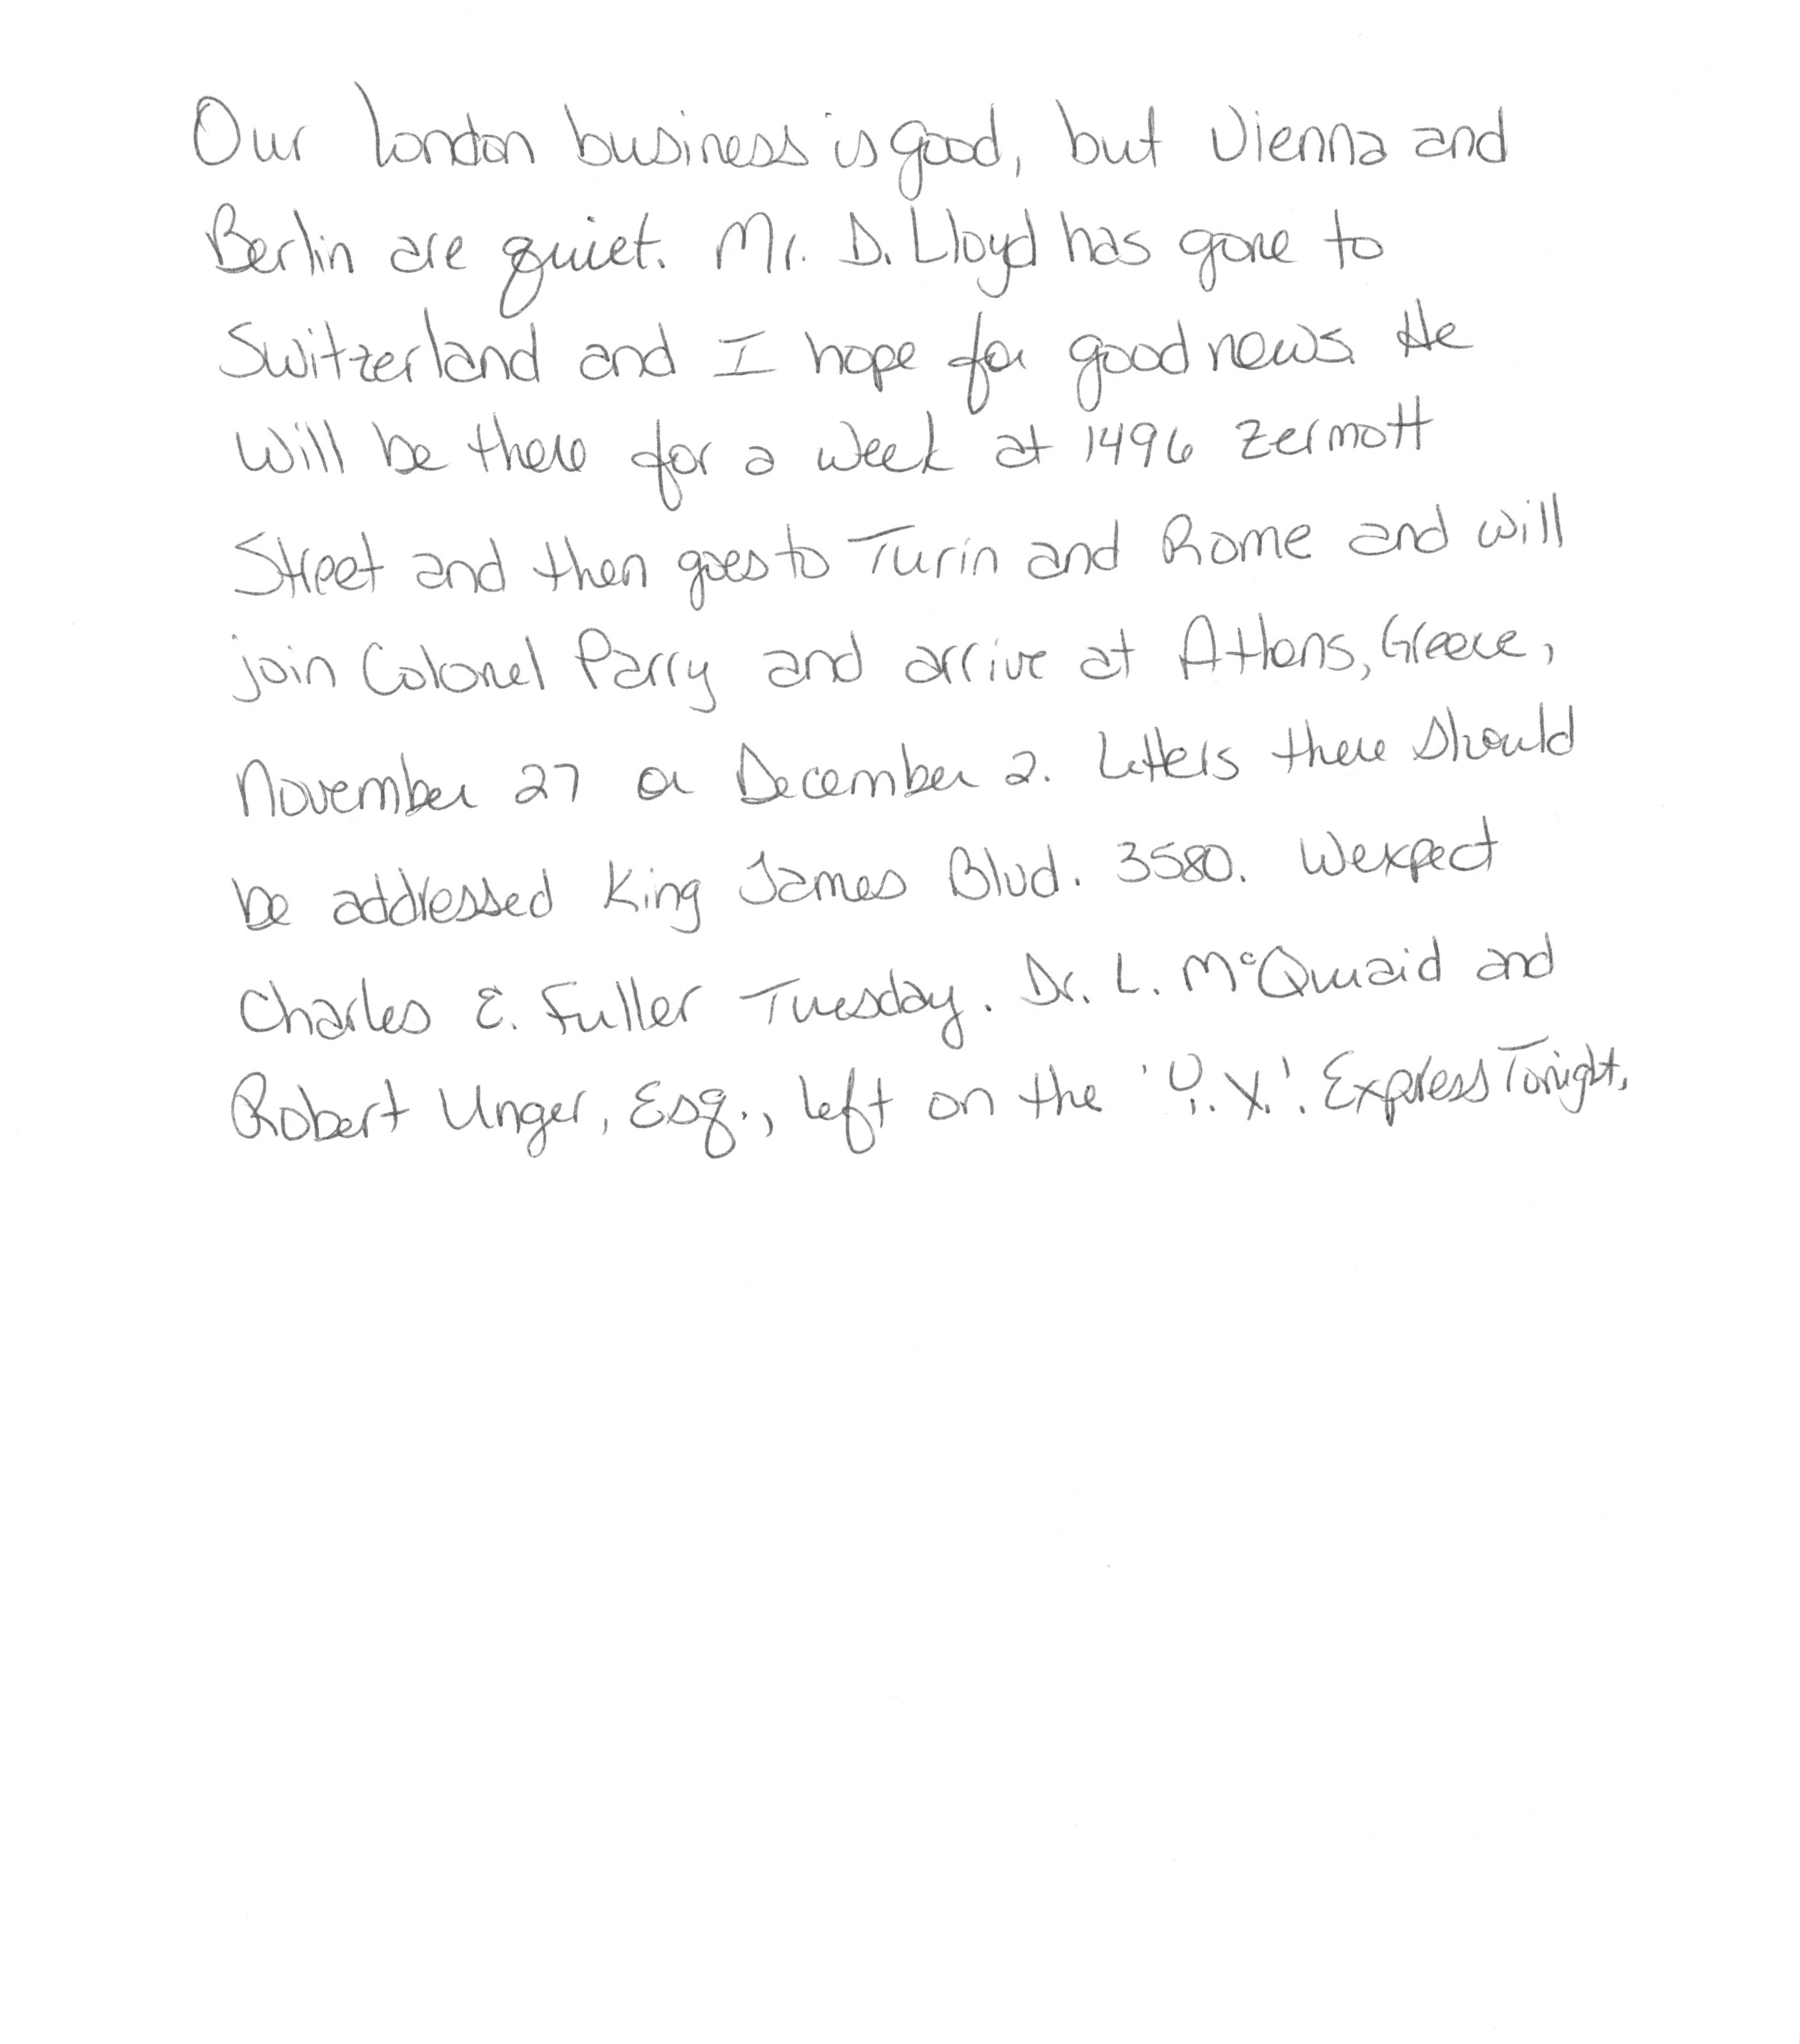 Our London business is good, but Vienna and
Berlin are quiet. Mr. D. Lloyd has gone to
Switzerland and I hope for good news. He
will be there for a week at 1496 Zermott
Street and then goes to Turin and Rome and will
join Colonel Parry and arrive at Athens, Greece,
November 27 or December 2. Letters there should
be addressed King James Blvd. 3580. We expect
Charles E. Fuller Tuesday. Dr. L. McQuaid and
Robert Unger, Esq., left on the 'Y. X.'. Express Tonight.